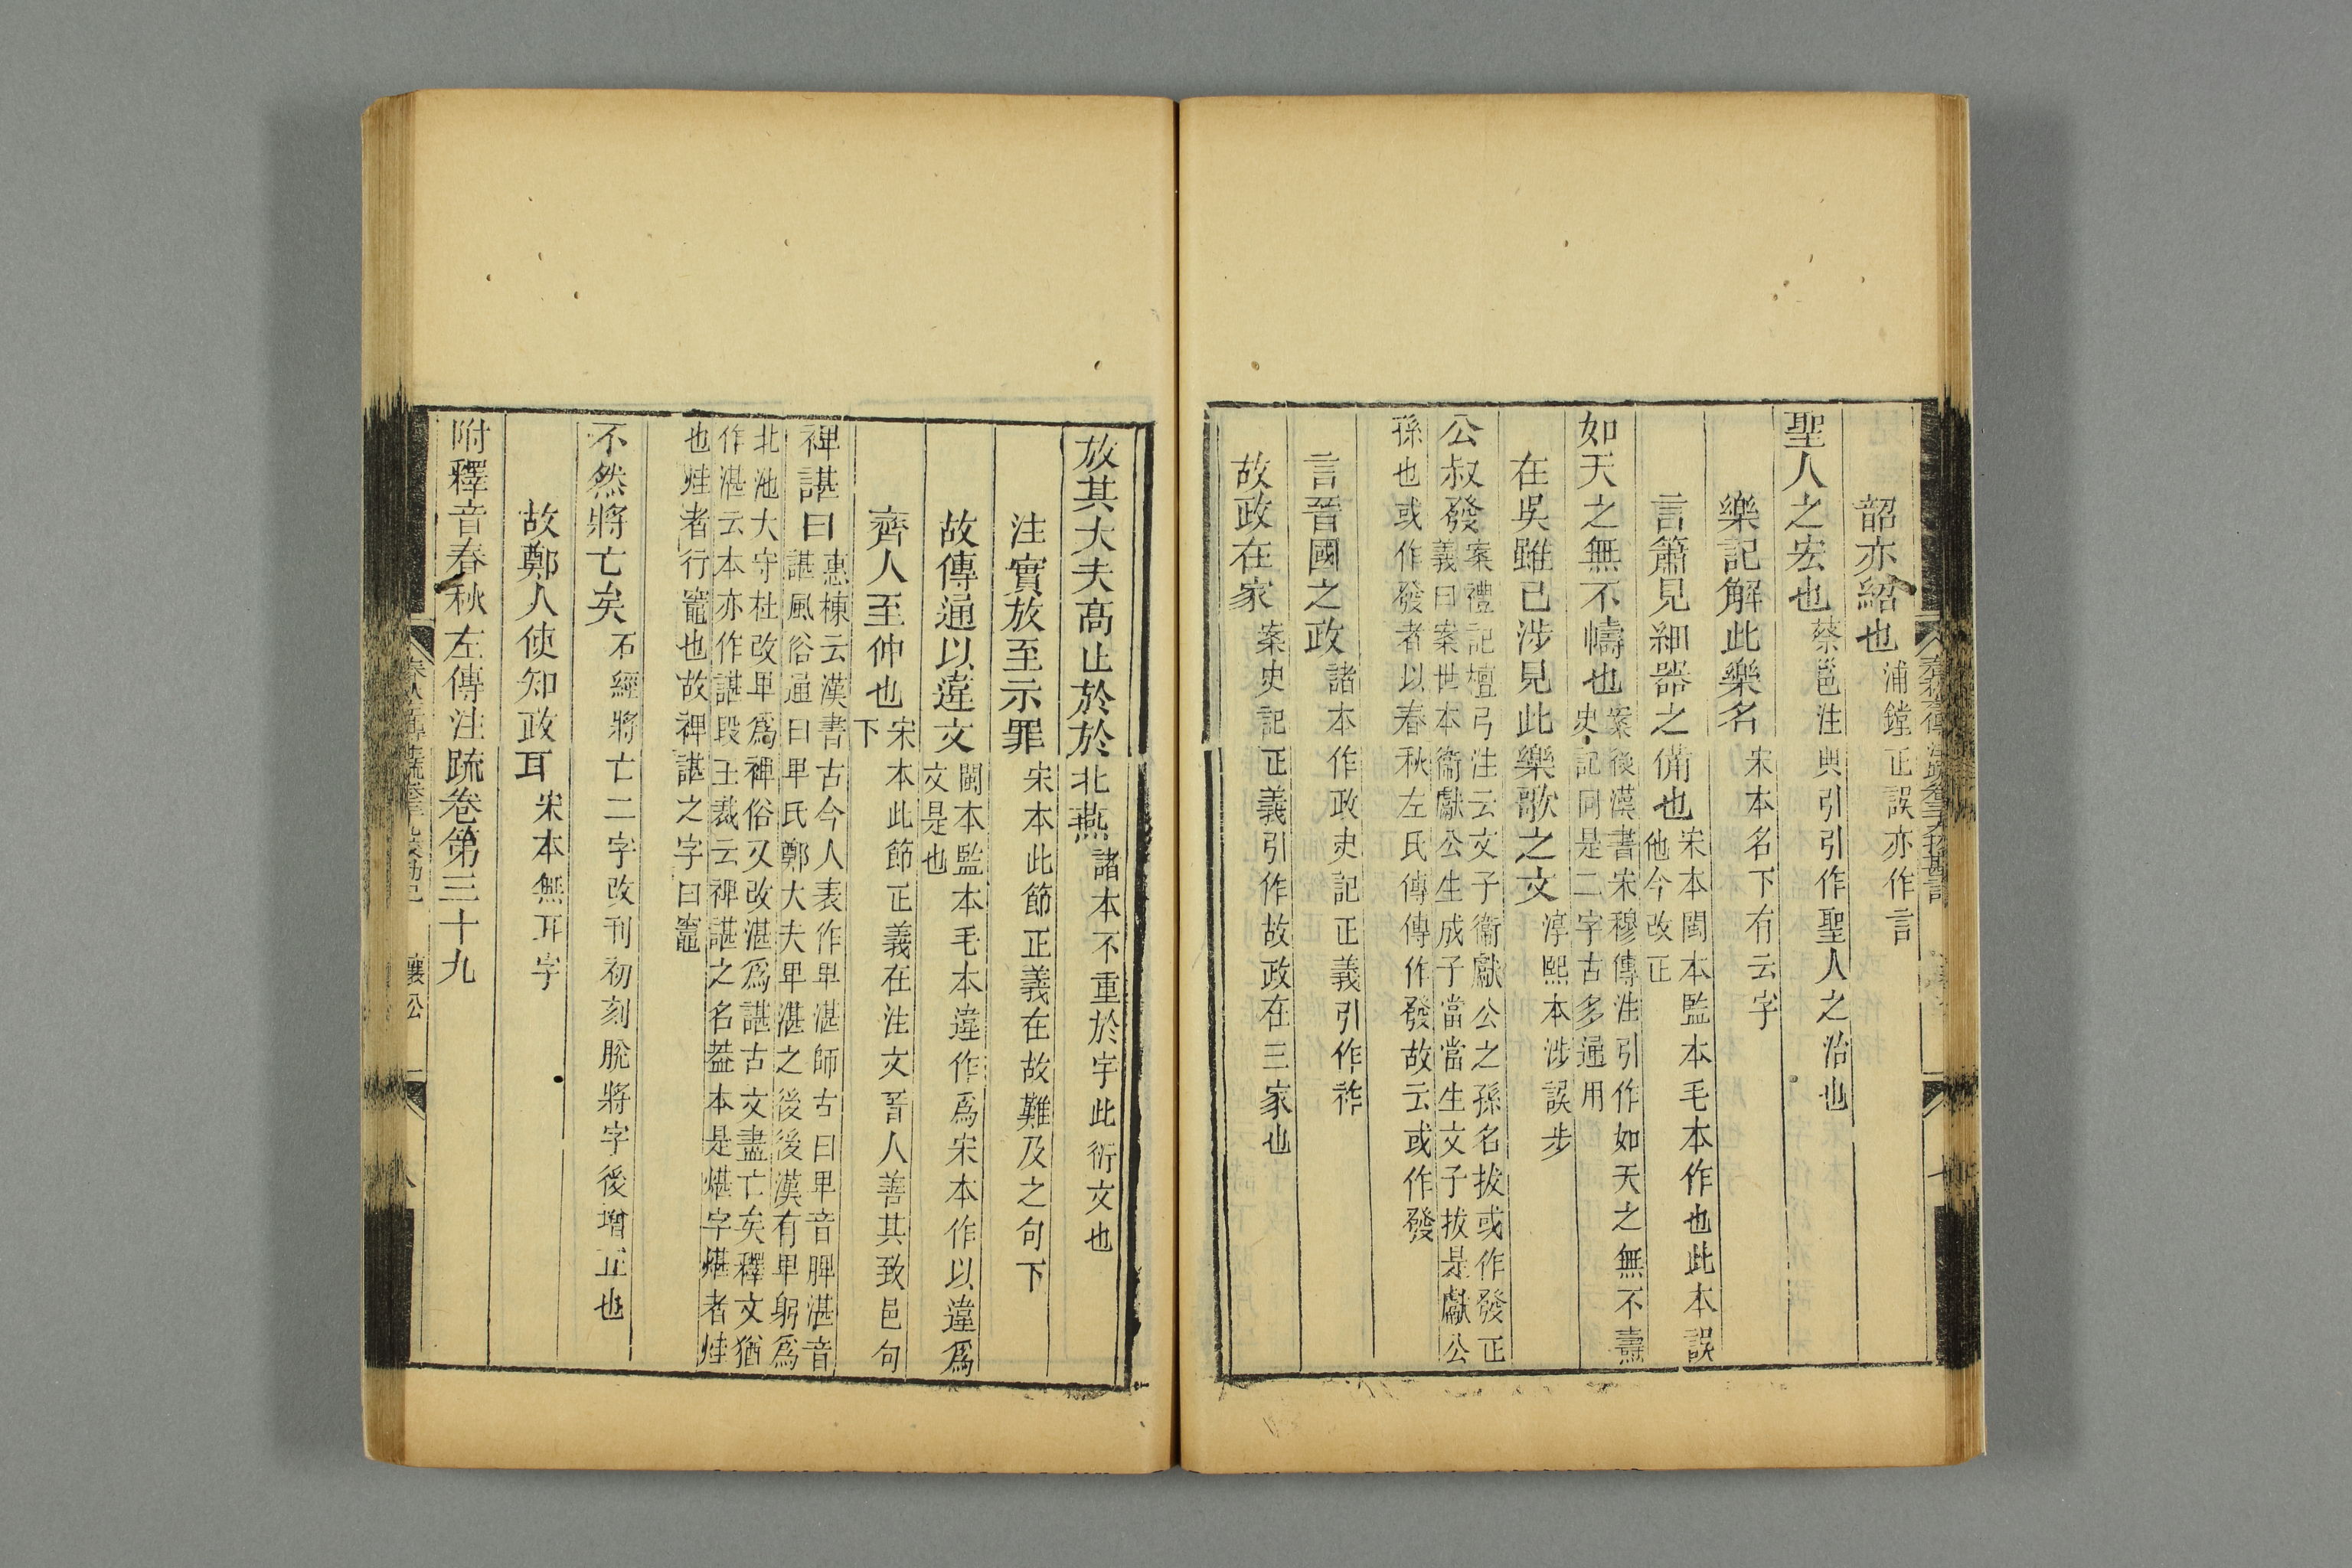 韶亦紹也 浦鏜正誤亦作言
聖人之宏也 蔡邕注典引引作聖人之治也
樂記解此樂名 宋本名下有云字
言簫見細器之備也 宋本閩本監本毛本作也此本誤
他今改正
如天之無不幬也 案後漢書宋穆傳注引作如天之無不燾
史記同是二字古多通用
在吳雖已涉見此樂歌之文 淳熙本涉誤步
公叔發 案禮記檀弓注云文子衞獻公之孫名拔或作發正
義曰案世本衞獻公生成子當當生文子拔是獻公
孫也或作發者以春秋左氏傳傳作發故云或作發
言晉國之政 諸本作政史記正義引作祚
故政在家 案史記正義引作故政在三家也
放其大夫高止於於北燕 諸本不重於字此衍文也
注實放至示罪 宋本此節正義在故難及之句下
故傳通以違文 閩本監本毛本違作爲宋本作以違爲
文是也
齊人至仲也 宋本此節正義在注文晉人善其致邑句
下
裨諶曰 惠棟云漢書古今人表作卑湛師古曰卑音脾湛音
諶風俗通曰卑氏鄭大夫卑湛之後後漢有卑躬爲
北池大守杜改卑爲裨俗又改湛爲諶古文盡亡矣釋文猶
作湛云本亦作諶段玉裁云裨諶之名葢本是煁字煁者烓
也烓者行竈也故裨諶之字曰竈
不然將亡矣 石經將亡二字改刊初刻脫將字後增正也
故鄭人使知政耳 宋本無耳字
附釋音春秋左傳注疏卷第三十九
襄公